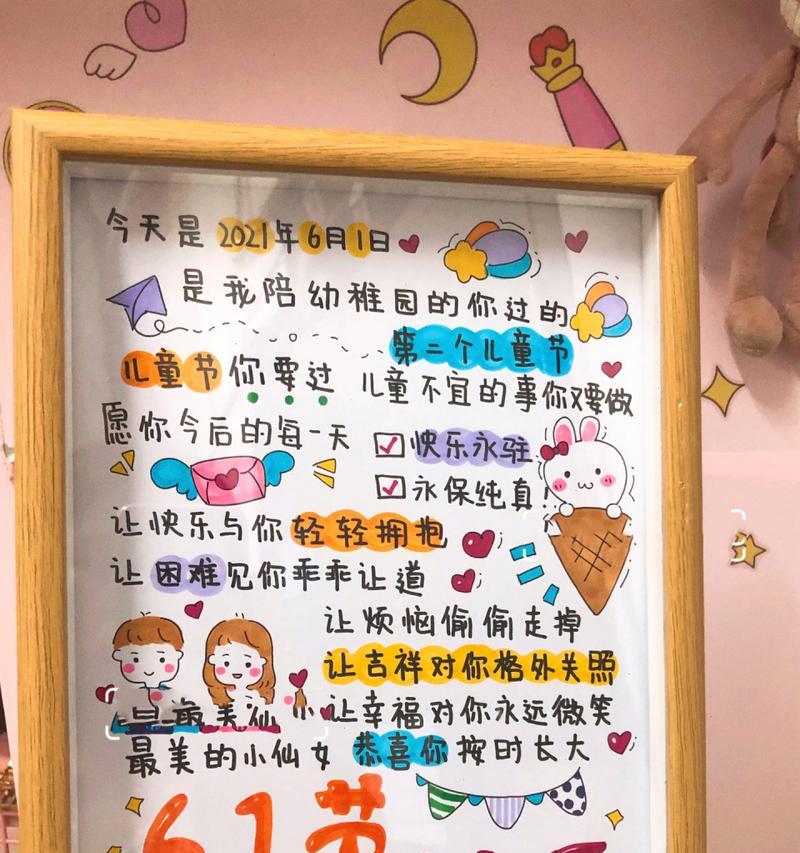 今天是2021年6月1日
是我陪幼稚园的你过的
第二个儿童节
儿童节你要过
儿童不宜的事你又要做
愿你今后的每一天
快乐永驻
永保纯真!
让快乐与你轻轻拥抱
让困难见你乖乖让道
让烦恼偷偷走掉
让吉祥对你格外关照
让幸福对你永远微笑
最美的小仙女恭喜你按时长大
61节